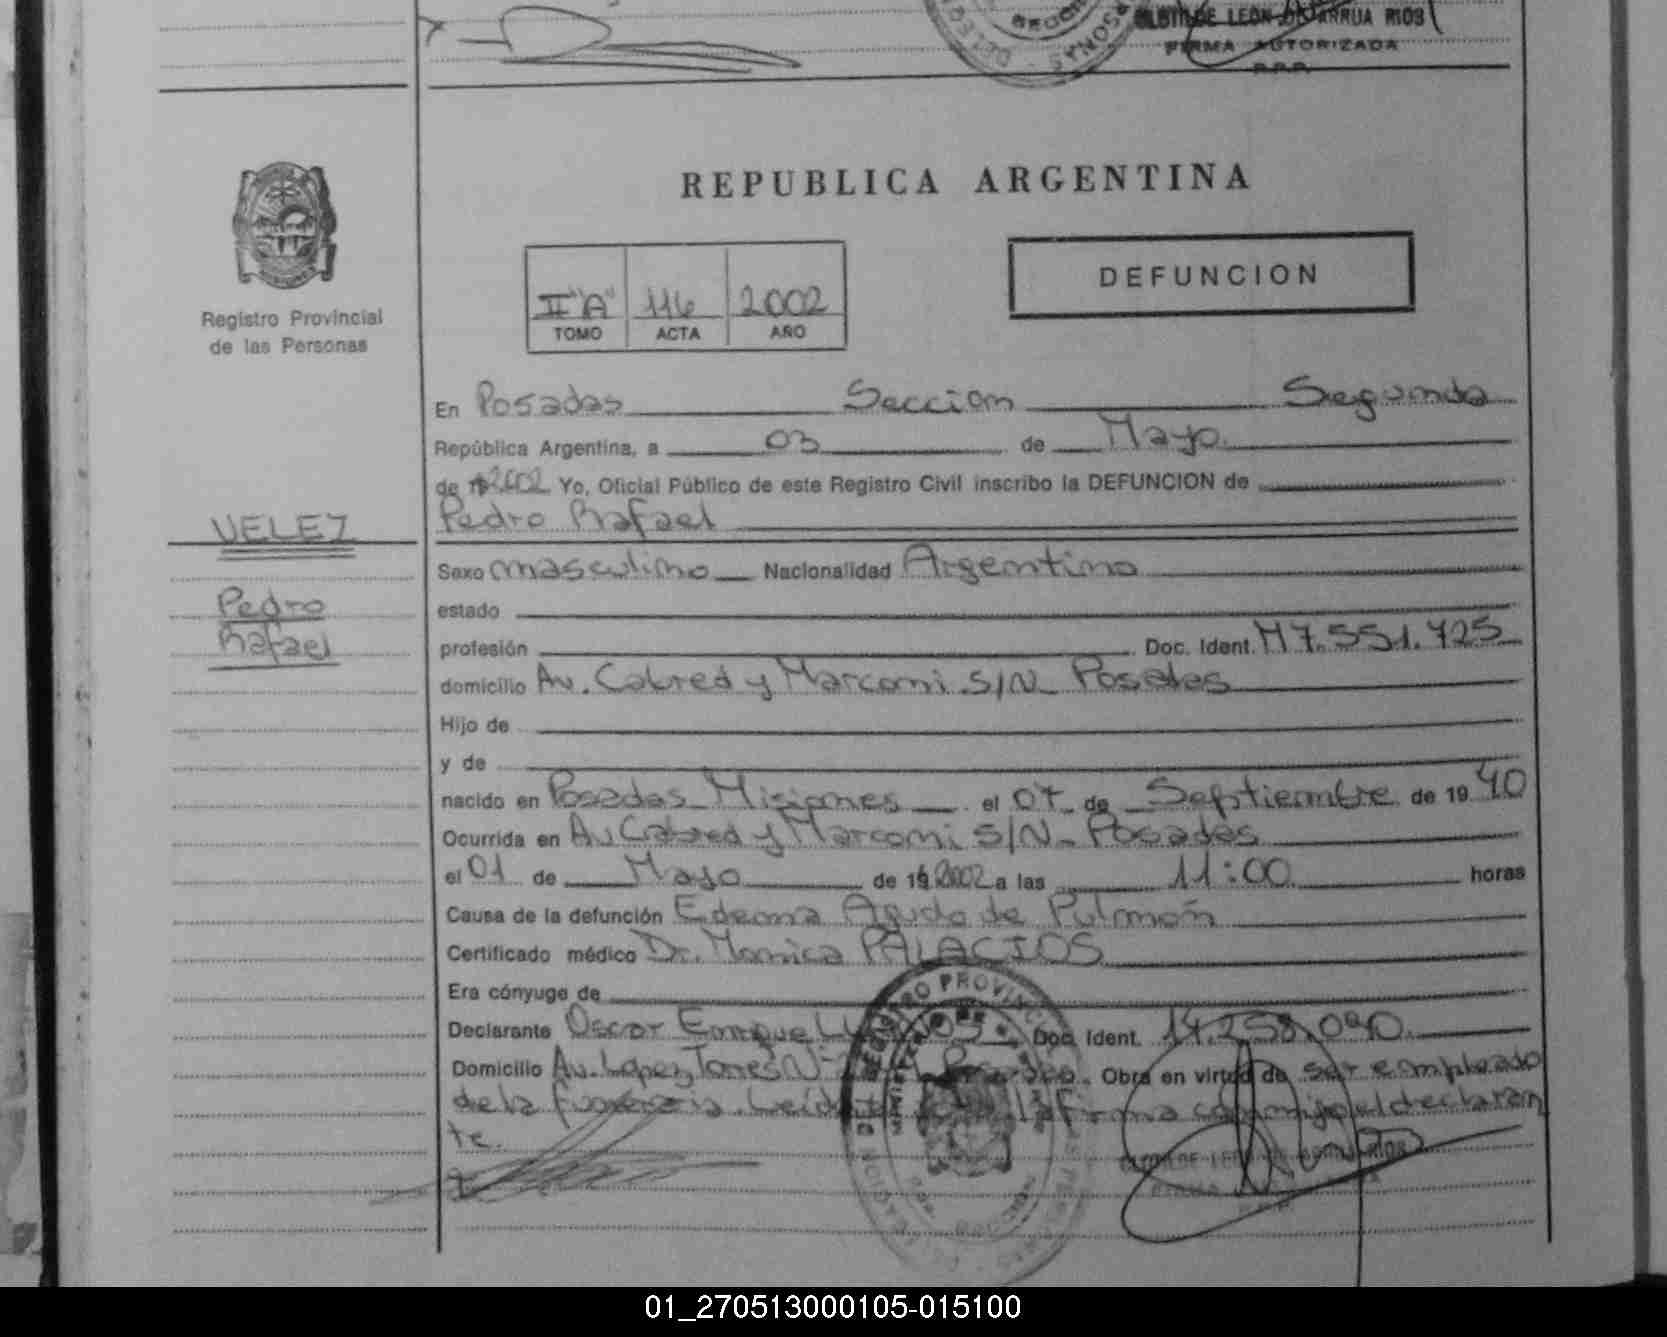 CLOTILDE LEON DE ARRUA RIOS
FIRMA AUTORIZADA
R.P.P.
REPUBLICA ARGENTINA
Registro Provincial
de las Personas
II "A" 116 2002
TOMO ACTA AÑO
DEFUNCION
En Posadas Seccion Segunda
República Argentina, a 03 de Mayo
de 2002 Yo, Oficial Público de este Registro Civil inscribo la DEFUNCION de
Pedro Rafael
VELEZ
Pedro
Rafael
Sexo masculino Nacionalidad Argentino
estado
profesión Doc. Ident. M7.551.725
domicilio Av. Cabred y Marconi S/N Posadas
Hijo de
y de
nacido en Posadas Misiones el 07 de Septiembre de 19 40
Ocurrida en Av Cabred y Marconi S/N Posadas
el 01 de Mayo de 2002 a las 11:00 horas
Causa de la defunción Edema Agudo de Pulmón
Certificado médico Dr. Monica PALACIOS
Era cónyuge de
Declarante Oscar Enrique Doc. Ident. 14.258.090
Domicilio Av. Lopez Torres N Obra en virtud de ser empleado
de la funeraria. Leída la firma conmigo el declaran
te.
CLOTILDE LEON DE ARRUA RIOS
FIRMA
R.P.P.
01_270513000105-015100